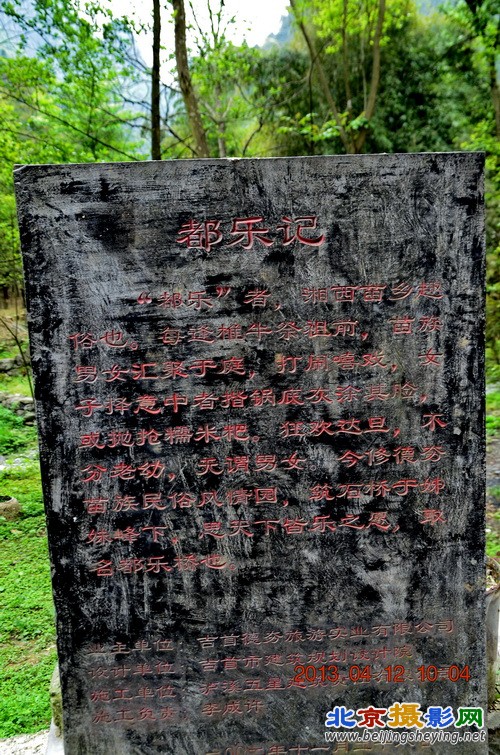 都乐记
“都乐”者，湘西苗乡起
俗也。每逢雄牛祭祖前，苗族
男女汇聚于庭，打闹嬉戏，女
子择意中者指锅底灰涂其脸，
或抛抢糯米粑。狂欢达旦，不
分老幼，无谓男女。今修德夯
苗族民俗风情园，筑石桥于姊
妹峰下，思天下皆乐之愿，取
名都乐桥也。
业主单位：吉首德夯旅游实业有限公司
设计单位：吉首市建筑规划设计院
施工单位：泸溪五星
施工负责：李成
2013.04.12 10:04
北京摄影网
www.beijingsheying.net